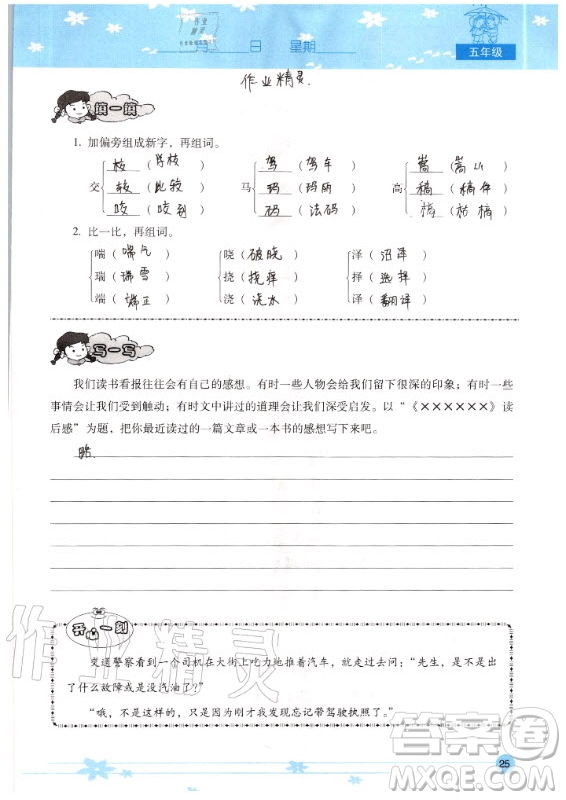 作业
精灵
月 日 星期
五年级
作业精灵.
填一填
1. 加偏旁组成新字，再组词。
校（学校） 驾（驾车） 嵩（嵩山）
交 较（比较） 马 玛（玛丽） 高 稿（稿件）
咬（咬到） 码（法码） 槁（枯槁）
2. 比一比，再组词。
喘（喘气） 晓（破晓） 泽（沼泽）
瑞（瑞雪） 挠（挠痒） 择（选择）
端（端正） 浇（浇水） 译（翻译）
写一写
我们读书看报往往会有自己的感想。有时一些人物会给我们留下很深的印象；有时一些
事情会让我们受到触动；有时文中讲过的道理会让我们深受启发。以“《××××××》读
后感”为题，把你最近读过的一篇文章或一本书的感想写下来吧。
略.
开心一刻
交通警察看到一个司机在大街上吃力地推着汽车，就走过去问：“先生，是不是出
了什么故障或是没汽油了？”
“哦，不是这样的，只是因为刚才我发现忘记带驾驶执照了。”
作业精灵
答案圈
MXQE.COM
25